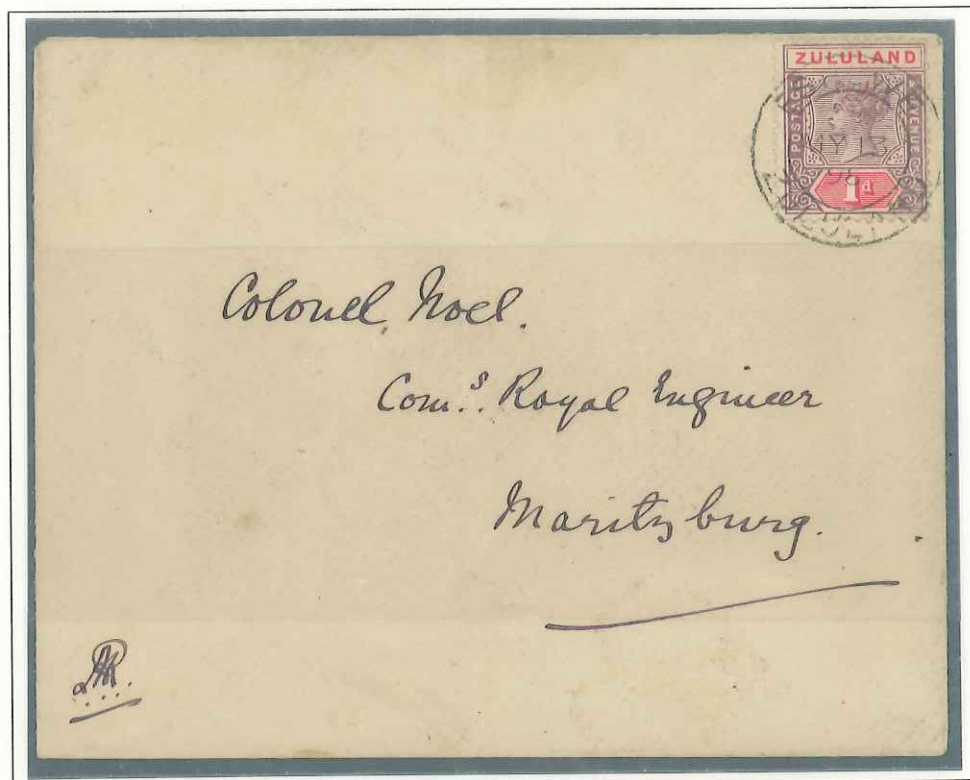 ZULULAND
POSTAGE
REVENUE
MY 13
98
ZULULAND
1d
Colonel Noel.
Com.s Royal Engineer
Maritzburg.